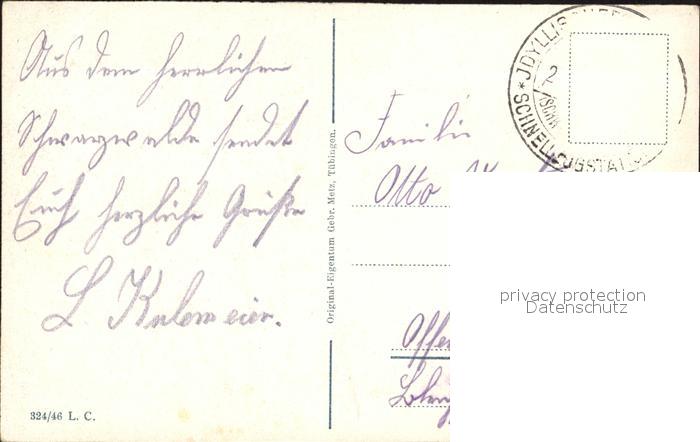 Aus dem herrlichen
Schwarzwalde sendet
Euch herzliche Grüße
L
324/46 L. C.
Original-Eigentum Gebr. Metz, Tübingen.
Familie
Otto
Offe
SCHNELLZUGSTAT
privacy protection
Datenschutz